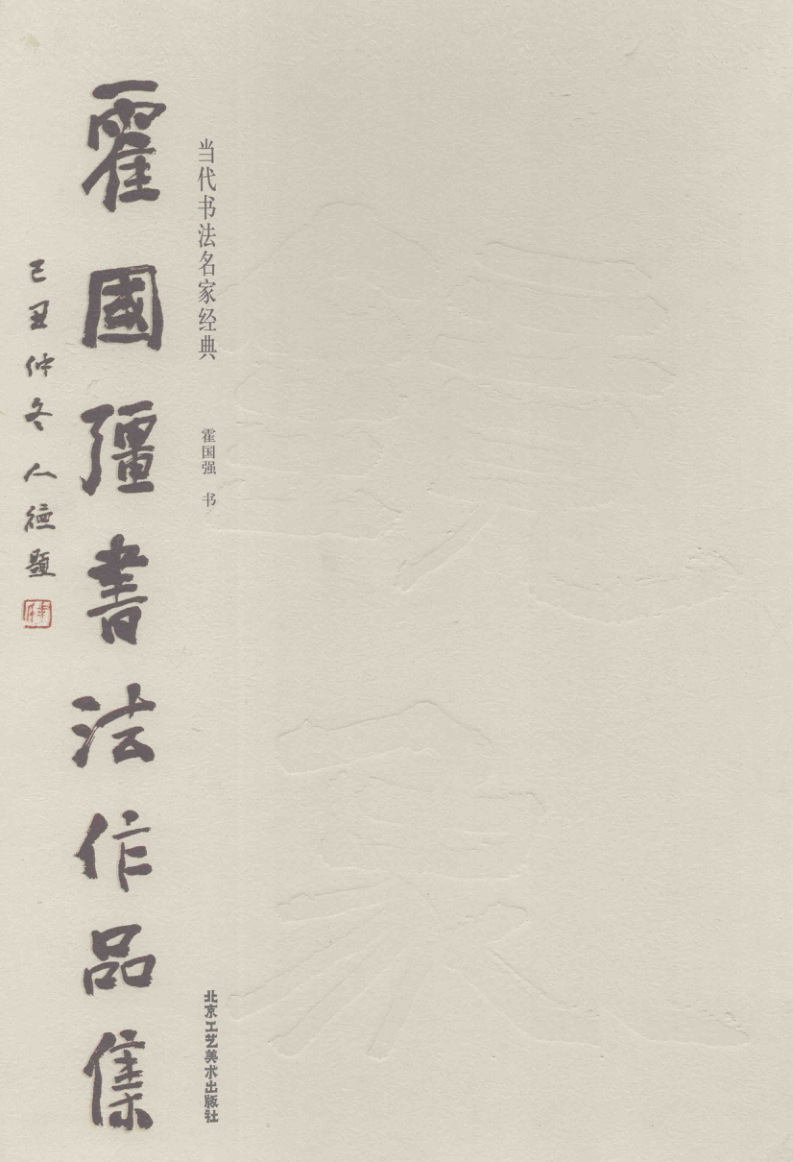 当代书法名家经典
霍国强 书
北京工艺美术出版社
霍國彊書法作品集
己丑仲冬人德題